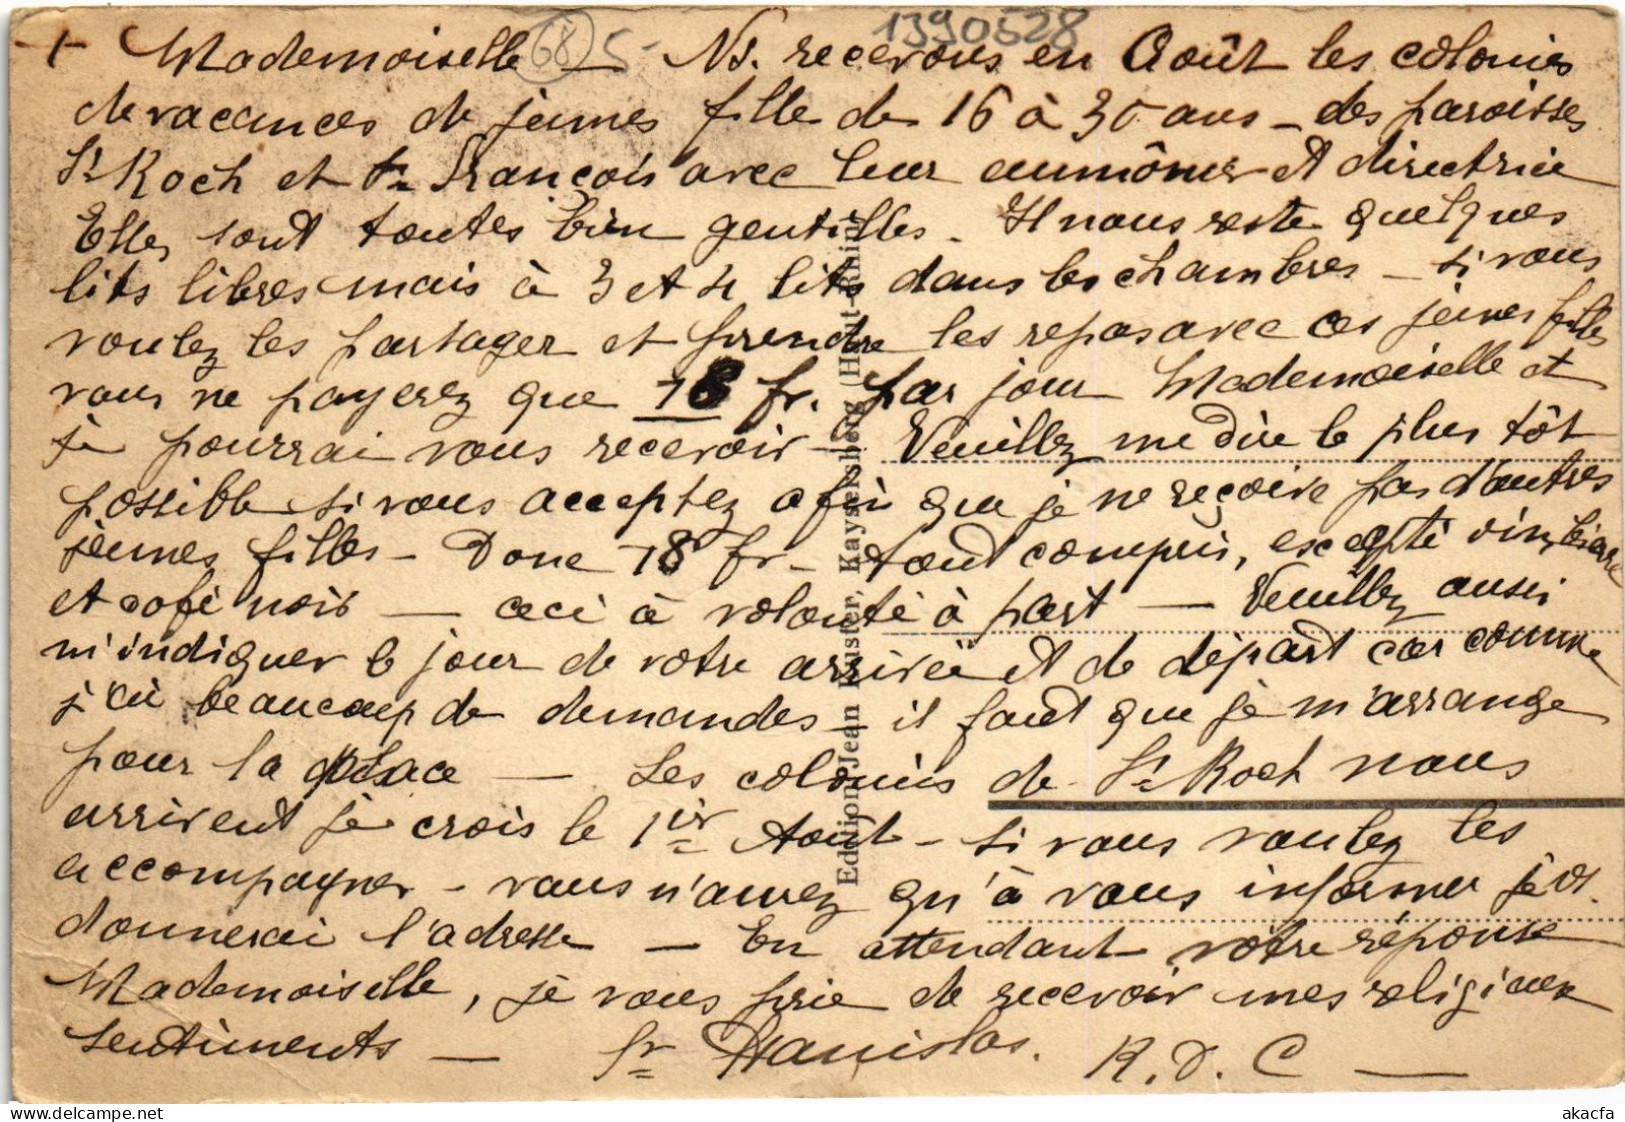 1390528
68 5-
+ Mademoiselle — Ns. recevons en Août les colonies
de vacances de jeunes fille de 16 à 30 ans — des paroisses
St Roch et St François avec leur aumônier et directrice
Elles sont toutes bien gentilles. Il nous reste quelques
lits libres mais à 3 et 4 lits dans les chambres — si vous
voulez les partager et prendre les repas avec ces jeunes filles
vous ne payerez que 18 fr. par jour Mademoiselle et
je pourrai vous recevoir — Veuillez me dire le plus tôt
possible si vous acceptez afin que je ne reçoive pas d'autres
jeunes filles — Donc 18 fr — tout compris, excepté vin, bière
et café noir — ceci à volonté à part — Veuillez aussi
m'indiquer le jour de votre arrivée et de départ car comme
j'ai beaucoup de demandes — il faut que je m'arrange
pour la place — Les colonies de St Roch nous
arrivent je crois le 1ier Août — si vous voulez les
accompagner — vous n'aurez qu'à vous informer je vs.
donnerai l'adresse — En attendant votre réponse
Mademoiselle, je vous prie de recevoir mes religieux
sentiments — Sr Stanislas. R. D. C —
Edition Jean Kuster, Kaysersberg (Haut-Rhin)
akacfa